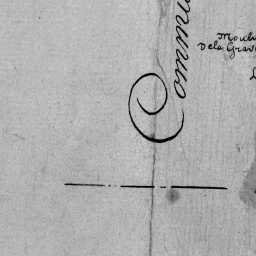 Commu
Moulin
De la Grave